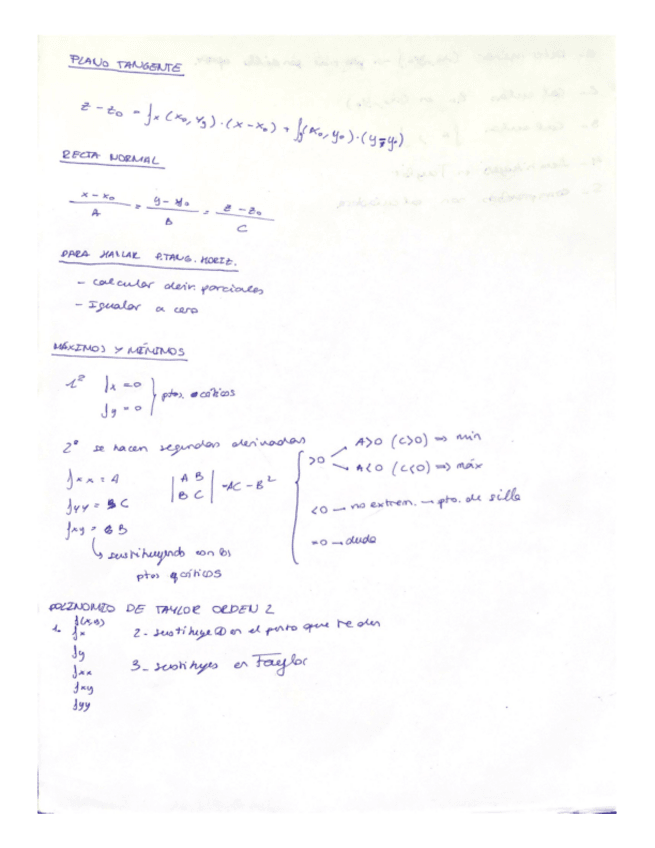 PLANO TANGENTE
z - z₀ = fx (x₀, y₀) · (x - x₀) + fy (x₀, y₀) · (y - y₀)
RECTA NORMAL
(x - x₀)/A = (y - y₀)/B = (z - z₀)/C
PARA HALLAR P.TANG. HORIZ.
- calcular deriv. parciales
- Igualar a cero
MÁXIMOS Y MÍNIMOS
1º fx = 0
fy = 0 } ptos. críticos
2º se hacen segundas derivadas
fxx = A
fyy = C
fxy = B
↳ sustituyendo con los
ptos críticos
|A B|
|B C| = AC - B²
>0 → A>0 (C>0) ⇒ mín
→ A<0 (C<0) ⇒ máx
<0 → no extrem. → pto. de silla
=0 → duda
POLINOMIO DE TAYLOR ORDEN 2
1. f(a,b)
fx
fy
fxx
fxy
fyy
2- sustituye ① en el punto que te den
3- sustituyes en Taylor